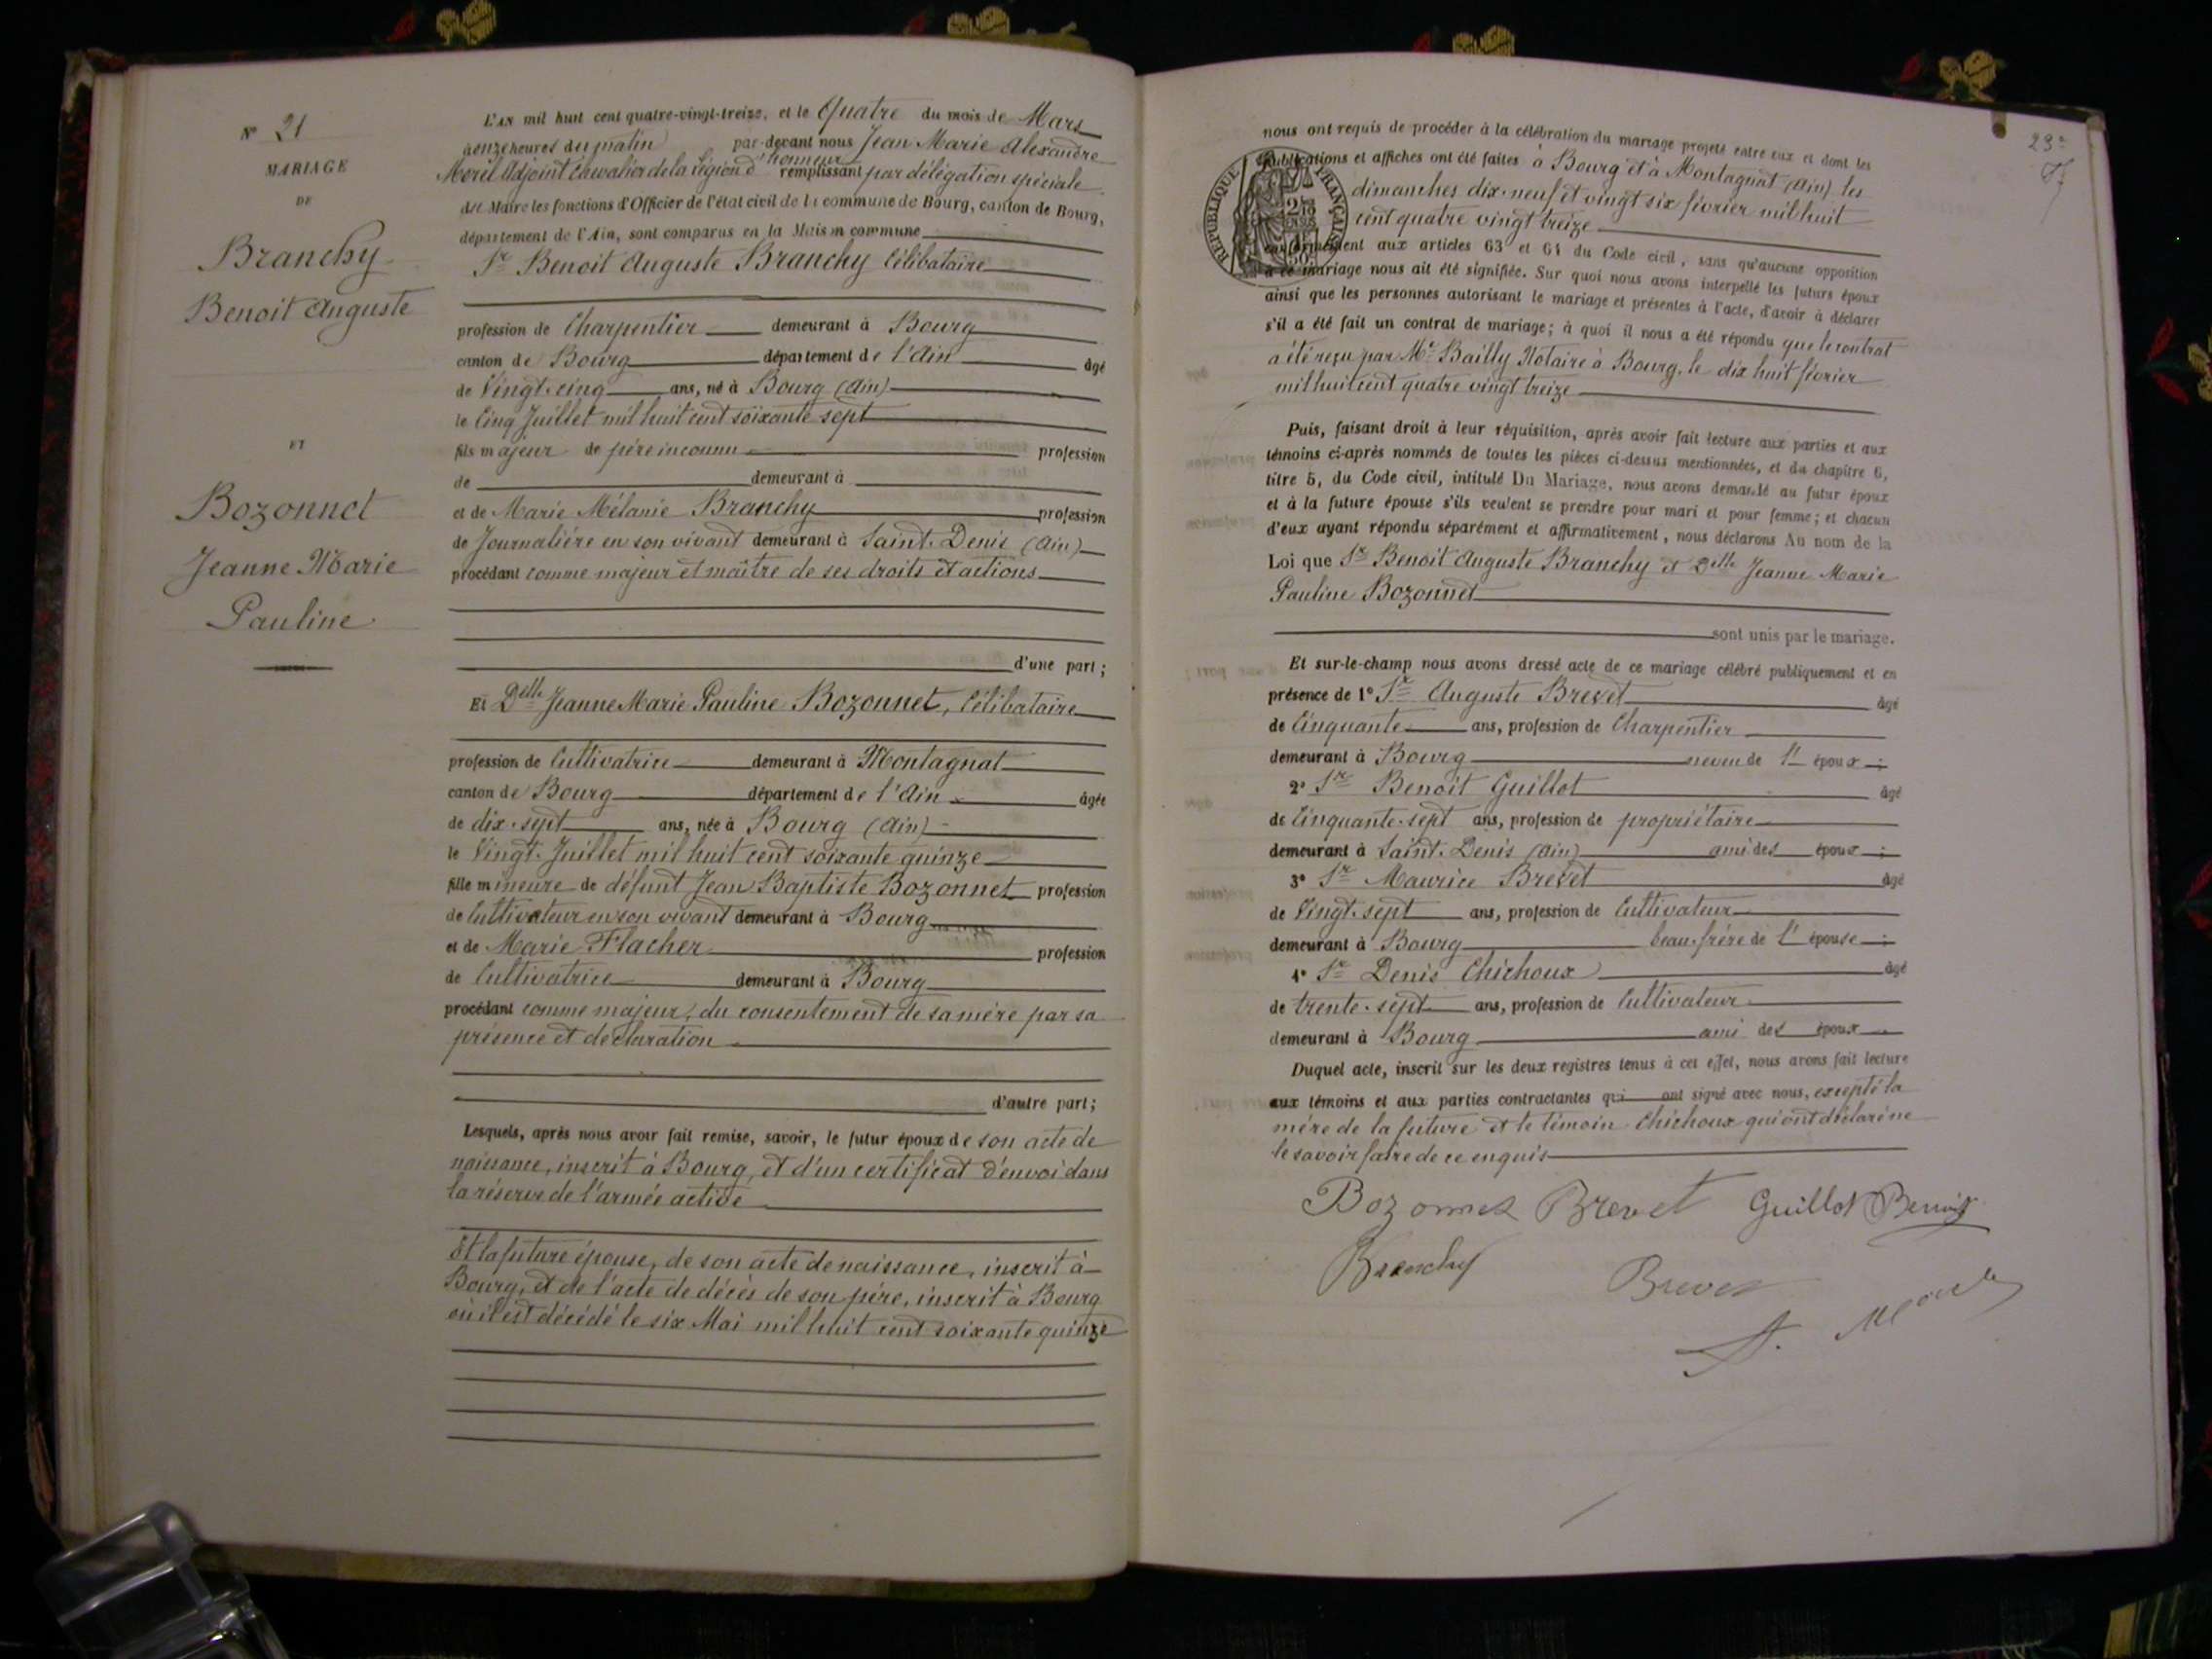 N° 21
MARIAGE
DE
Branchy
Benoit Auguste
ET
Bozonnet
Jeanne Marie
Pauline
L'AN mil huit cent quatre-vingt-treize, et le Quatre du mois de Mars
à onze heures du matin par-devant nous Jean Marie Alexandre
Morel Adjoint Chevalier de la Légion d'honneur remplissant par délégation spéciale
du Maire les fonctions d'Officier de l'état civil de la commune de Bourg, canton de Bourg,
département de l'Ain, sont comparus en la Maison commune
Sr Benoit Auguste Branchy Célibataire
profession de Charpentier demeurant à Bourg
canton de Bourg département de l'Ain âgé
de Vingt-cinq ans, né à Bourg (Ain)
le Cinq Juillet mil huit cent soixante sept
fils majeur de père inconnu profession
de demeurant à
et de Marie Mélanie Branchy profession
de Journalière en son vivant demeurant à Saint-Denis (Ain)
procédant comme majeur et maître de ses droits et actions
d'une part;
Et Delle Jeanne Marie Pauline Bozonnet, Célibataire
profession de Cultivatrice demeurant à Montagnat
canton de Bourg département de l'Ain âgée
de dix-sept ans, née à Bourg (Ain)
le Vingt Juillet mil huit cent soixante quinze
fille mineure de défunt Jean Baptiste Bozonnet profession
de Cultivateur en son vivant demeurant à Bourg
et de Marie Flacher profession
de Cultivatrice demeurant à Bourg
procédant comme majeur, du consentement de sa mère par sa
présence et déclaration
d'autre part;
Lesquels, après nous avoir fait remise, savoir, le futur époux de son acte de
naissance, inscrit à Bourg, et d'un certificat d'envoi dans
la réserve de l'armée active
Et la future épouse, de son acte de naissance, inscrit à
Bourg, et de l'acte de décès de son père, inscrit à Bourg
où il est décédé le six Mai mil huit cent soixante quinze
23e
nous ont requis de procéder à la célébration du mariage projeté entre eux et dont les
publications et affiches ont été faites à Bourg et à Montagnat (Ain) les
dimanches dix-neuf et vingt six février mil huit
cent quatre vingt treize
RÉPUBLIQUE FRANÇAISE
conformément aux articles 63 et 64 du Code civil, sans qu'aucune opposition
à ce mariage nous ait été signifiée. Sur quoi nous avons interpellé les futurs époux
ainsi que les personnes autorisant le mariage et présentes à l'acte, d'avoir à déclarer
s'il a été fait un contrat de mariage; à quoi il nous a été répondu que le contrat
a été reçu par Me Bailly Notaire à Bourg, le dix huit février
mil huit cent quatre vingt treize
Puis, faisant droit à leur réquisition, après avoir fait lecture aux parties et aux
témoins ci-après nommés de toutes les pièces ci-dessus mentionnées, et du chapitre 6,
titre 5, du Code civil, intitulé Du Mariage, nous avons demandé au futur époux
et à la future épouse s'ils veulent se prendre pour mari et pour femme; et chacun
d'eux ayant répondu séparément et affirmativement, nous déclarons Au nom de la
Loi que Sr Benoit Auguste Branchy et Delle Jeanne Marie
Pauline Bozonnet
sont unis par le mariage.
Et sur-le-champ nous avons dressé acte de ce mariage célébré publiquement et en
présence de 1° Sr Auguste Brevet âgé
de Cinquante ans, profession de Charpentier
demeurant à Bourg neveu de l' époux;
2° Sr Benoit Guillot âgé
de Cinquante-sept ans, profession de propriétaire
demeurant à Saint-Denis (Ain) ami des époux;
3° Sr Maurice Brevet âgé
de Vingt-sept ans, profession de Cultivateur
demeurant à Bourg beau-frère de l' épouse;
4° Sr Denis Chichoux âgé
de trente-sept ans, profession de Cultivateur
demeurant à Bourg ami des époux
Duquel acte, inscrit sur les deux registres tenus à cet effet, nous avons fait lecture
aux témoins et aux parties contractantes qui ont signé avec nous, excepté la
mère de la future et le témoin Chichoux qui ont déclaré ne
le savoir faire de ce enquis
Bozonnet Brevet Guillot Benoit
Branchy Brevet
A. Morel